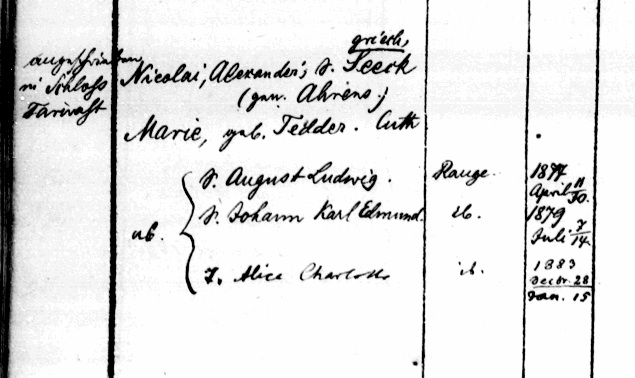 angeschrieben
in Schloss
Tarwast
griech.
Nicolai, Alexander, S. Seeck
(gen. Ahrens;)
Marie, geb. Tedder. luth
S. August Ludwig. Rauge. 1877 April 11/30.
S. Johann Karl Edmund. ib. 1879 Juli 7/14.
ub.
T. Alice Charlotte ib. 1883 Decbr. 28 Jan. 15